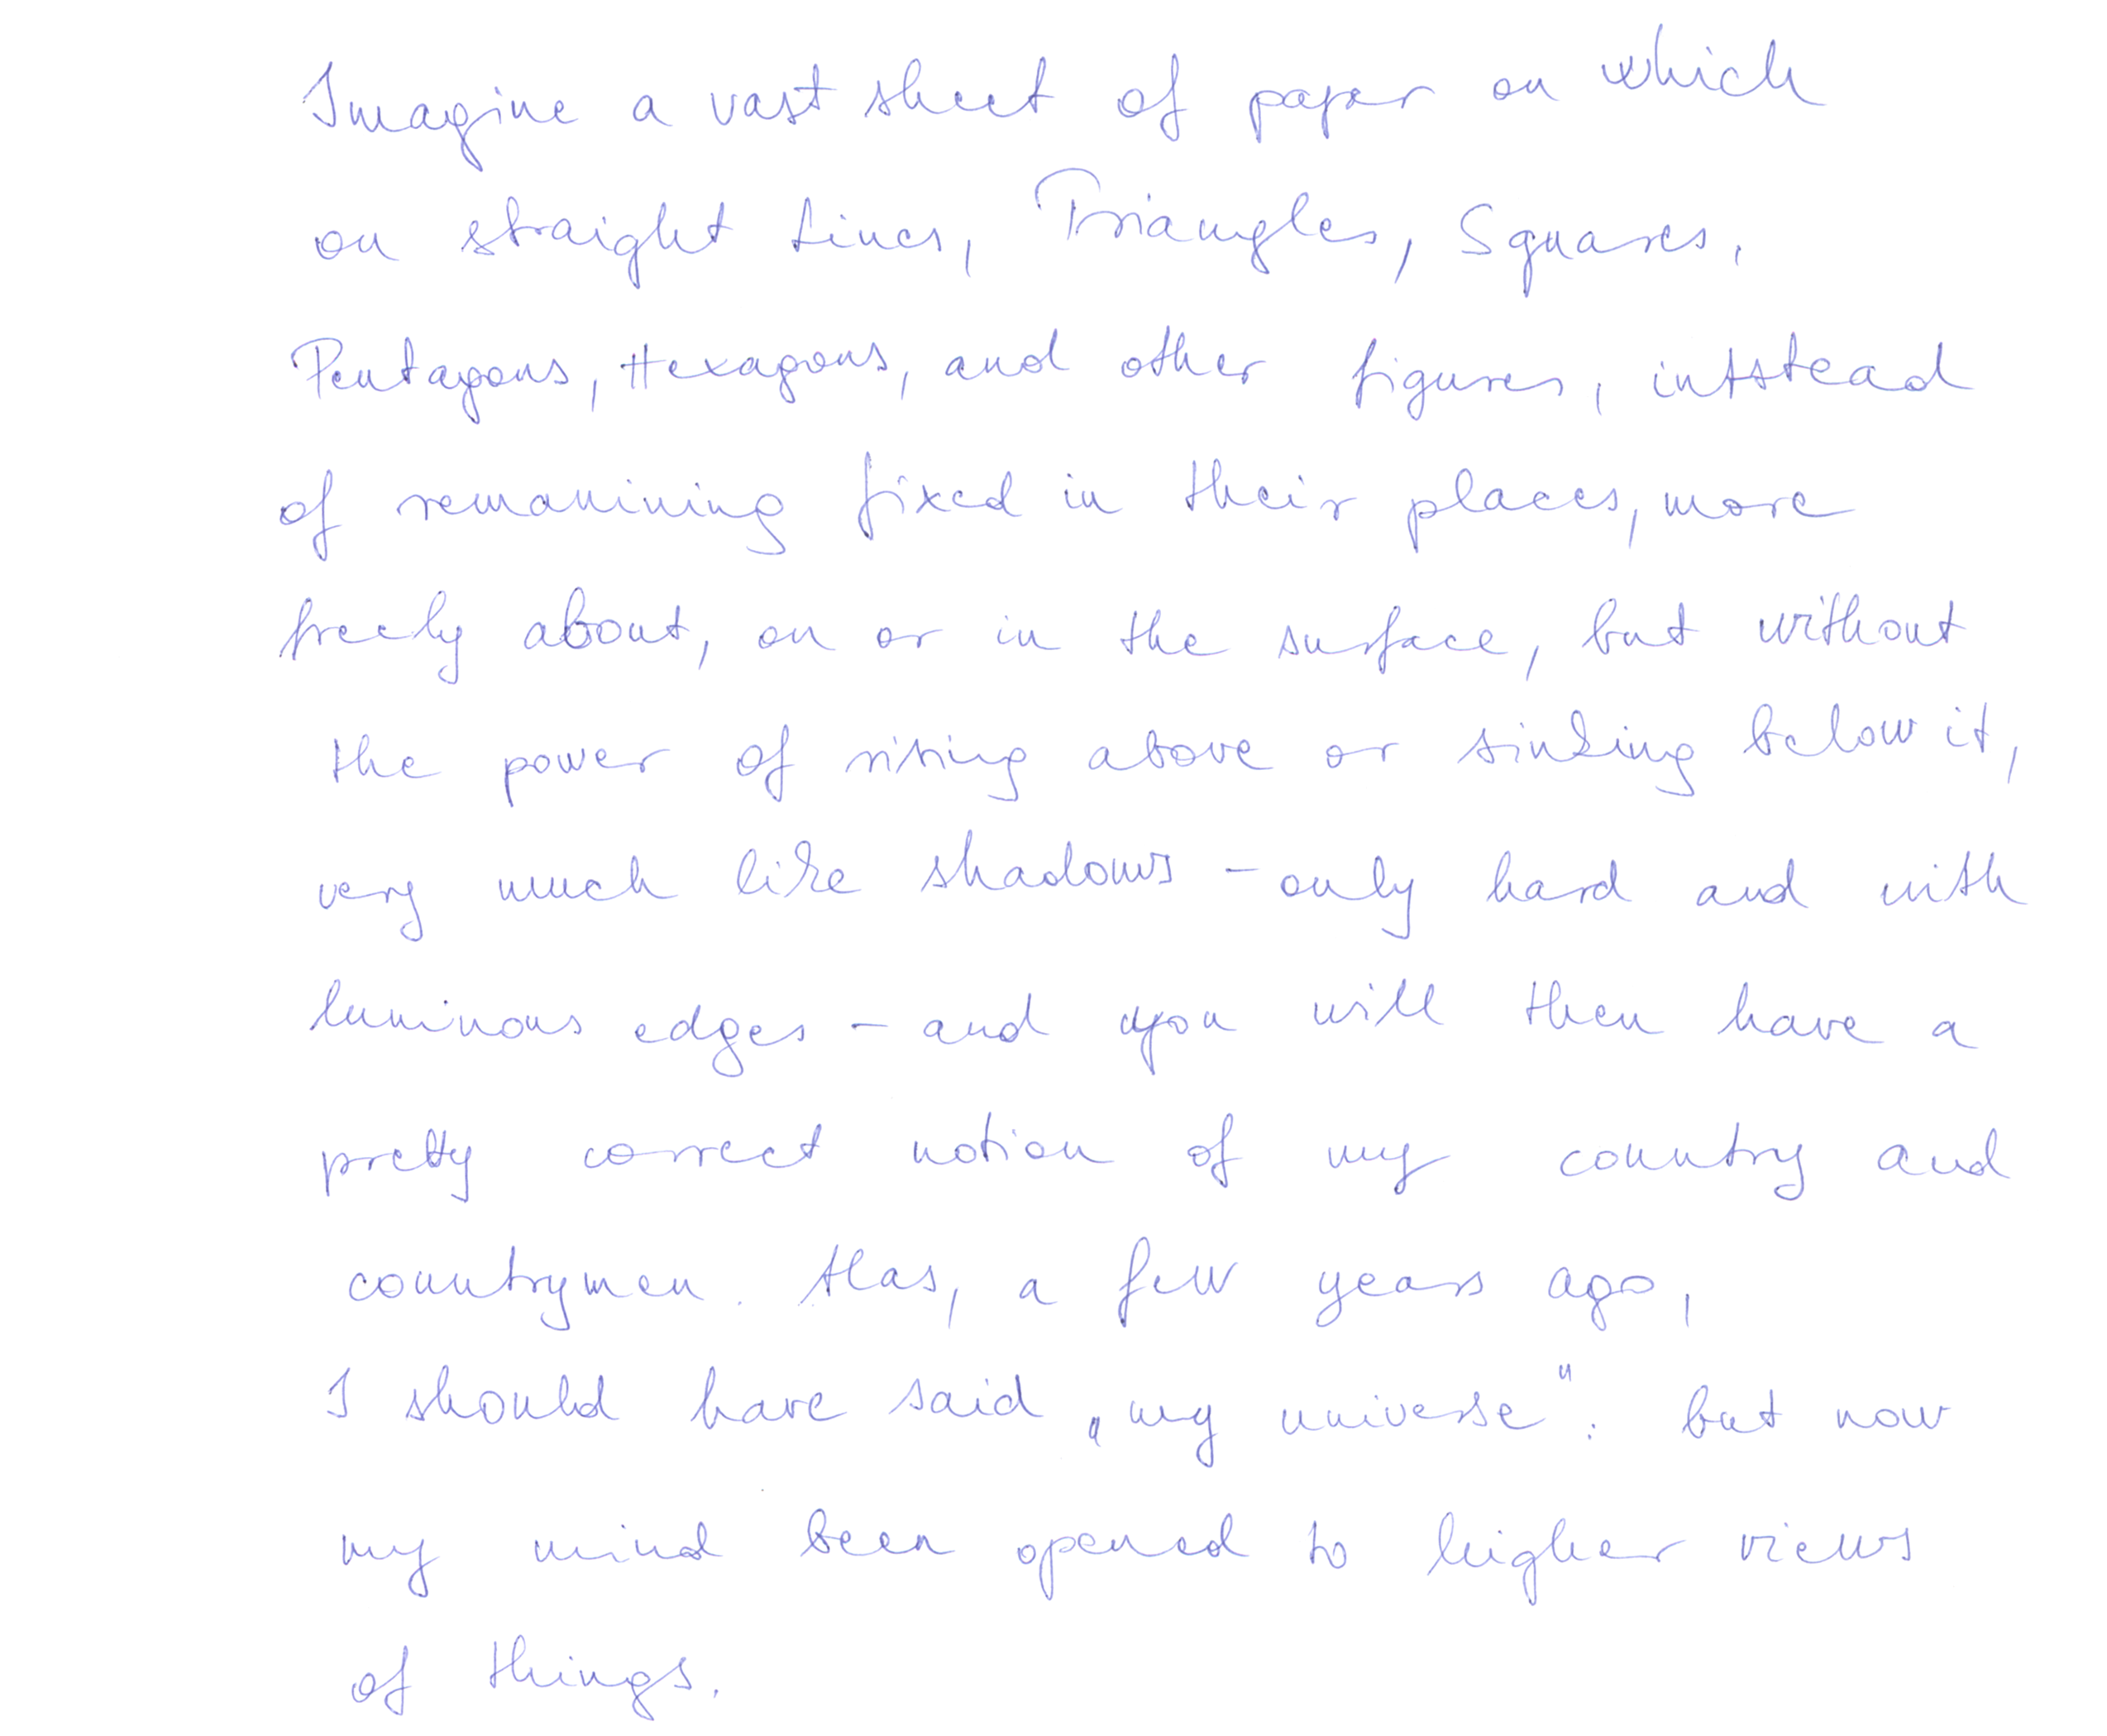 Imagine a vast sheet of paper on which
on straight Lines, Triangles, Squares,
Pentagons, Hexagons, and other figures, intstead
of remamining fixed in their places, more
freely about, on or in the surface, but without
the power of rising above or sinking below it,
very much like shadows – only hard and with
luminous edges – and you will then have a
pretty correct notion of my country and
countrymen. Alas, a few years ago,
I should have said „my universe“: but now
my mind been opened to higher views
of things.